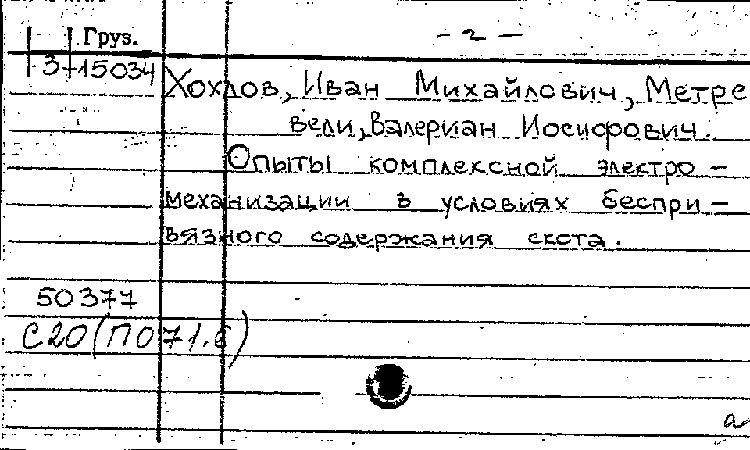 Груз.
- 2 -
3-15034
Хохлов, Иван Михайлович, Метре
вели, Валериан Иосифович.
Опыты комплексной электро-
механизации в условиях беспри-
вязного содержания скота.
50377
С20(П071.6)
а